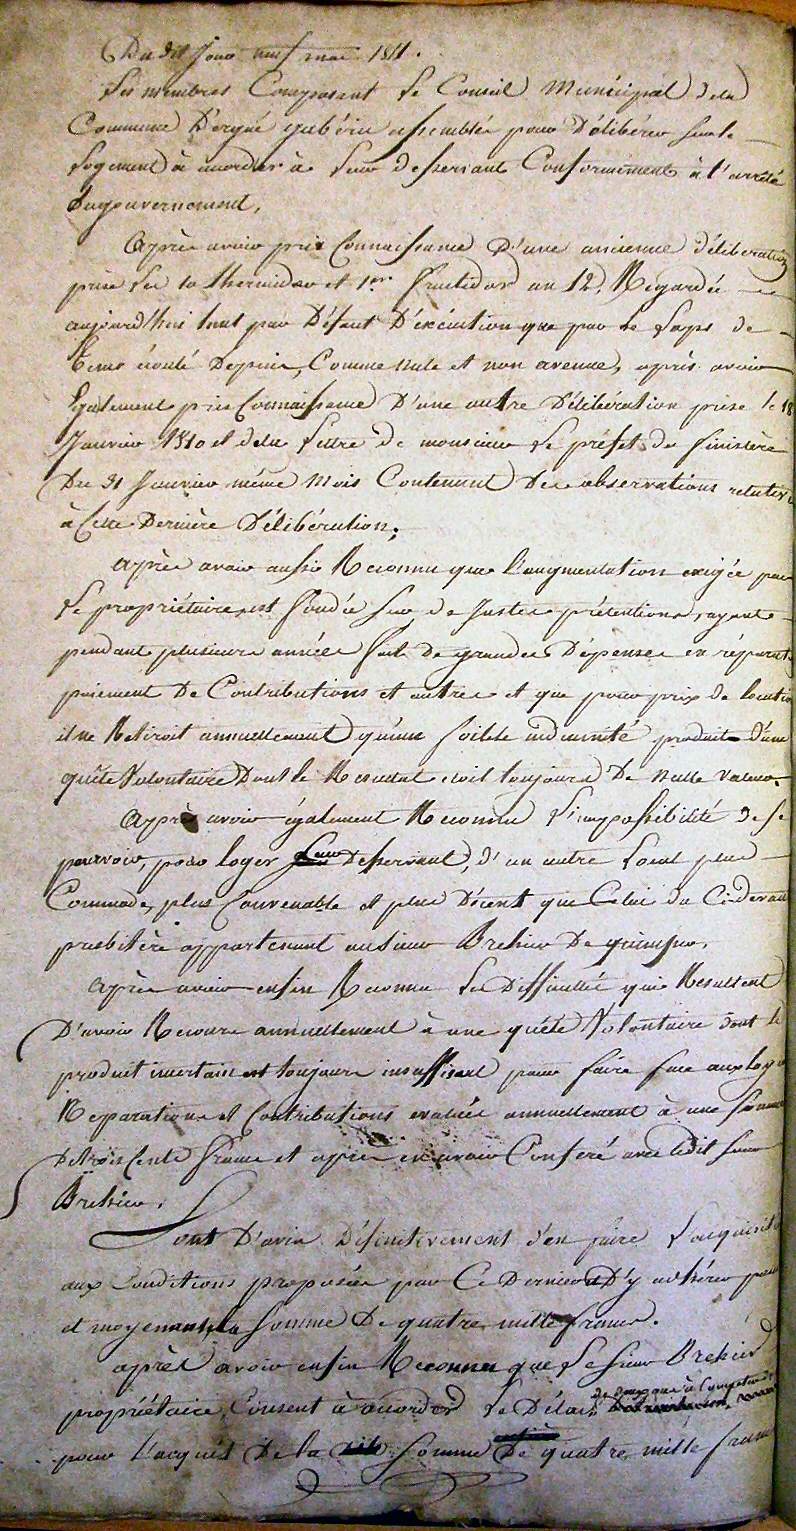 Du dit Jour neuf mai 1811.
Les membres Composant le Conseil Municipal dela
Commune D'ergué gabéric assemblés pour Délibérer sur le
logement à accorder à leur desservant Conformément à l'arrêté
du gouvernement,
Après avoir pris Connaissance D'une ancienne délibération
prise les 10 thermidor et 1er fructidor an 12, Regardée
aujourd'hui tant par Défaut D'exécution que par le laps de
tems écoulé Depuis, Comme nule et non avenue, après avoir
Egalement pris Connaissance D'une autre Délibération prise le 18
Janvier 1810 et dela lettre de monsieur le préfet du finistère
Du 31 Janvier même Mois Contenant Des observations relatives
à Cette Dernière Délibération;
Après avoir aussi Reconnu que L'augmentation exigée par
le propriétaire est fondée sur de Justes prétentions, ayant
pendant plusieurs années fait De grandes Dépenses en réparat
paiement De Contributions et autres et que pour prix de locatio
il ne Retiroit annuellement qu'une foible indemnité produit d'une
quête Volontaire Dont le Resultat étoit toujours De nulle valeur.
Après avoir également Reconnu l'impossibilité de se
pourvoir, pour loger leur Desservant, d'un autre local plus
Commode, plus Convenable et plus Décent que Celui du Ci-devant
presbitère appartenant au sieur Brehier De quimper.
Après avoir enfin Reconnu les Difficultés qui Resultent
D'avoir Recours annuellement à une quête Volontaire dont le
produit incertain est toujours insuffisant pour faire face aux loyer
Reparations et Contributions evalués annuellement à une somme
De trois Cents francs et après en avoir Conferé avec ledit sieur
Brehier.
Sont D'avis Définitivement d'en faire l'acquisitio
aux Conditions proposées par Ce Dernier et D'y adhérer pour
et moyennant la somme De quatre mille francs.
après avoir enfin Reconnu que le sieur Brehier
propriétaire, Consent à accorder le Délai
pour L'acquit De la somme De quatre mille francs